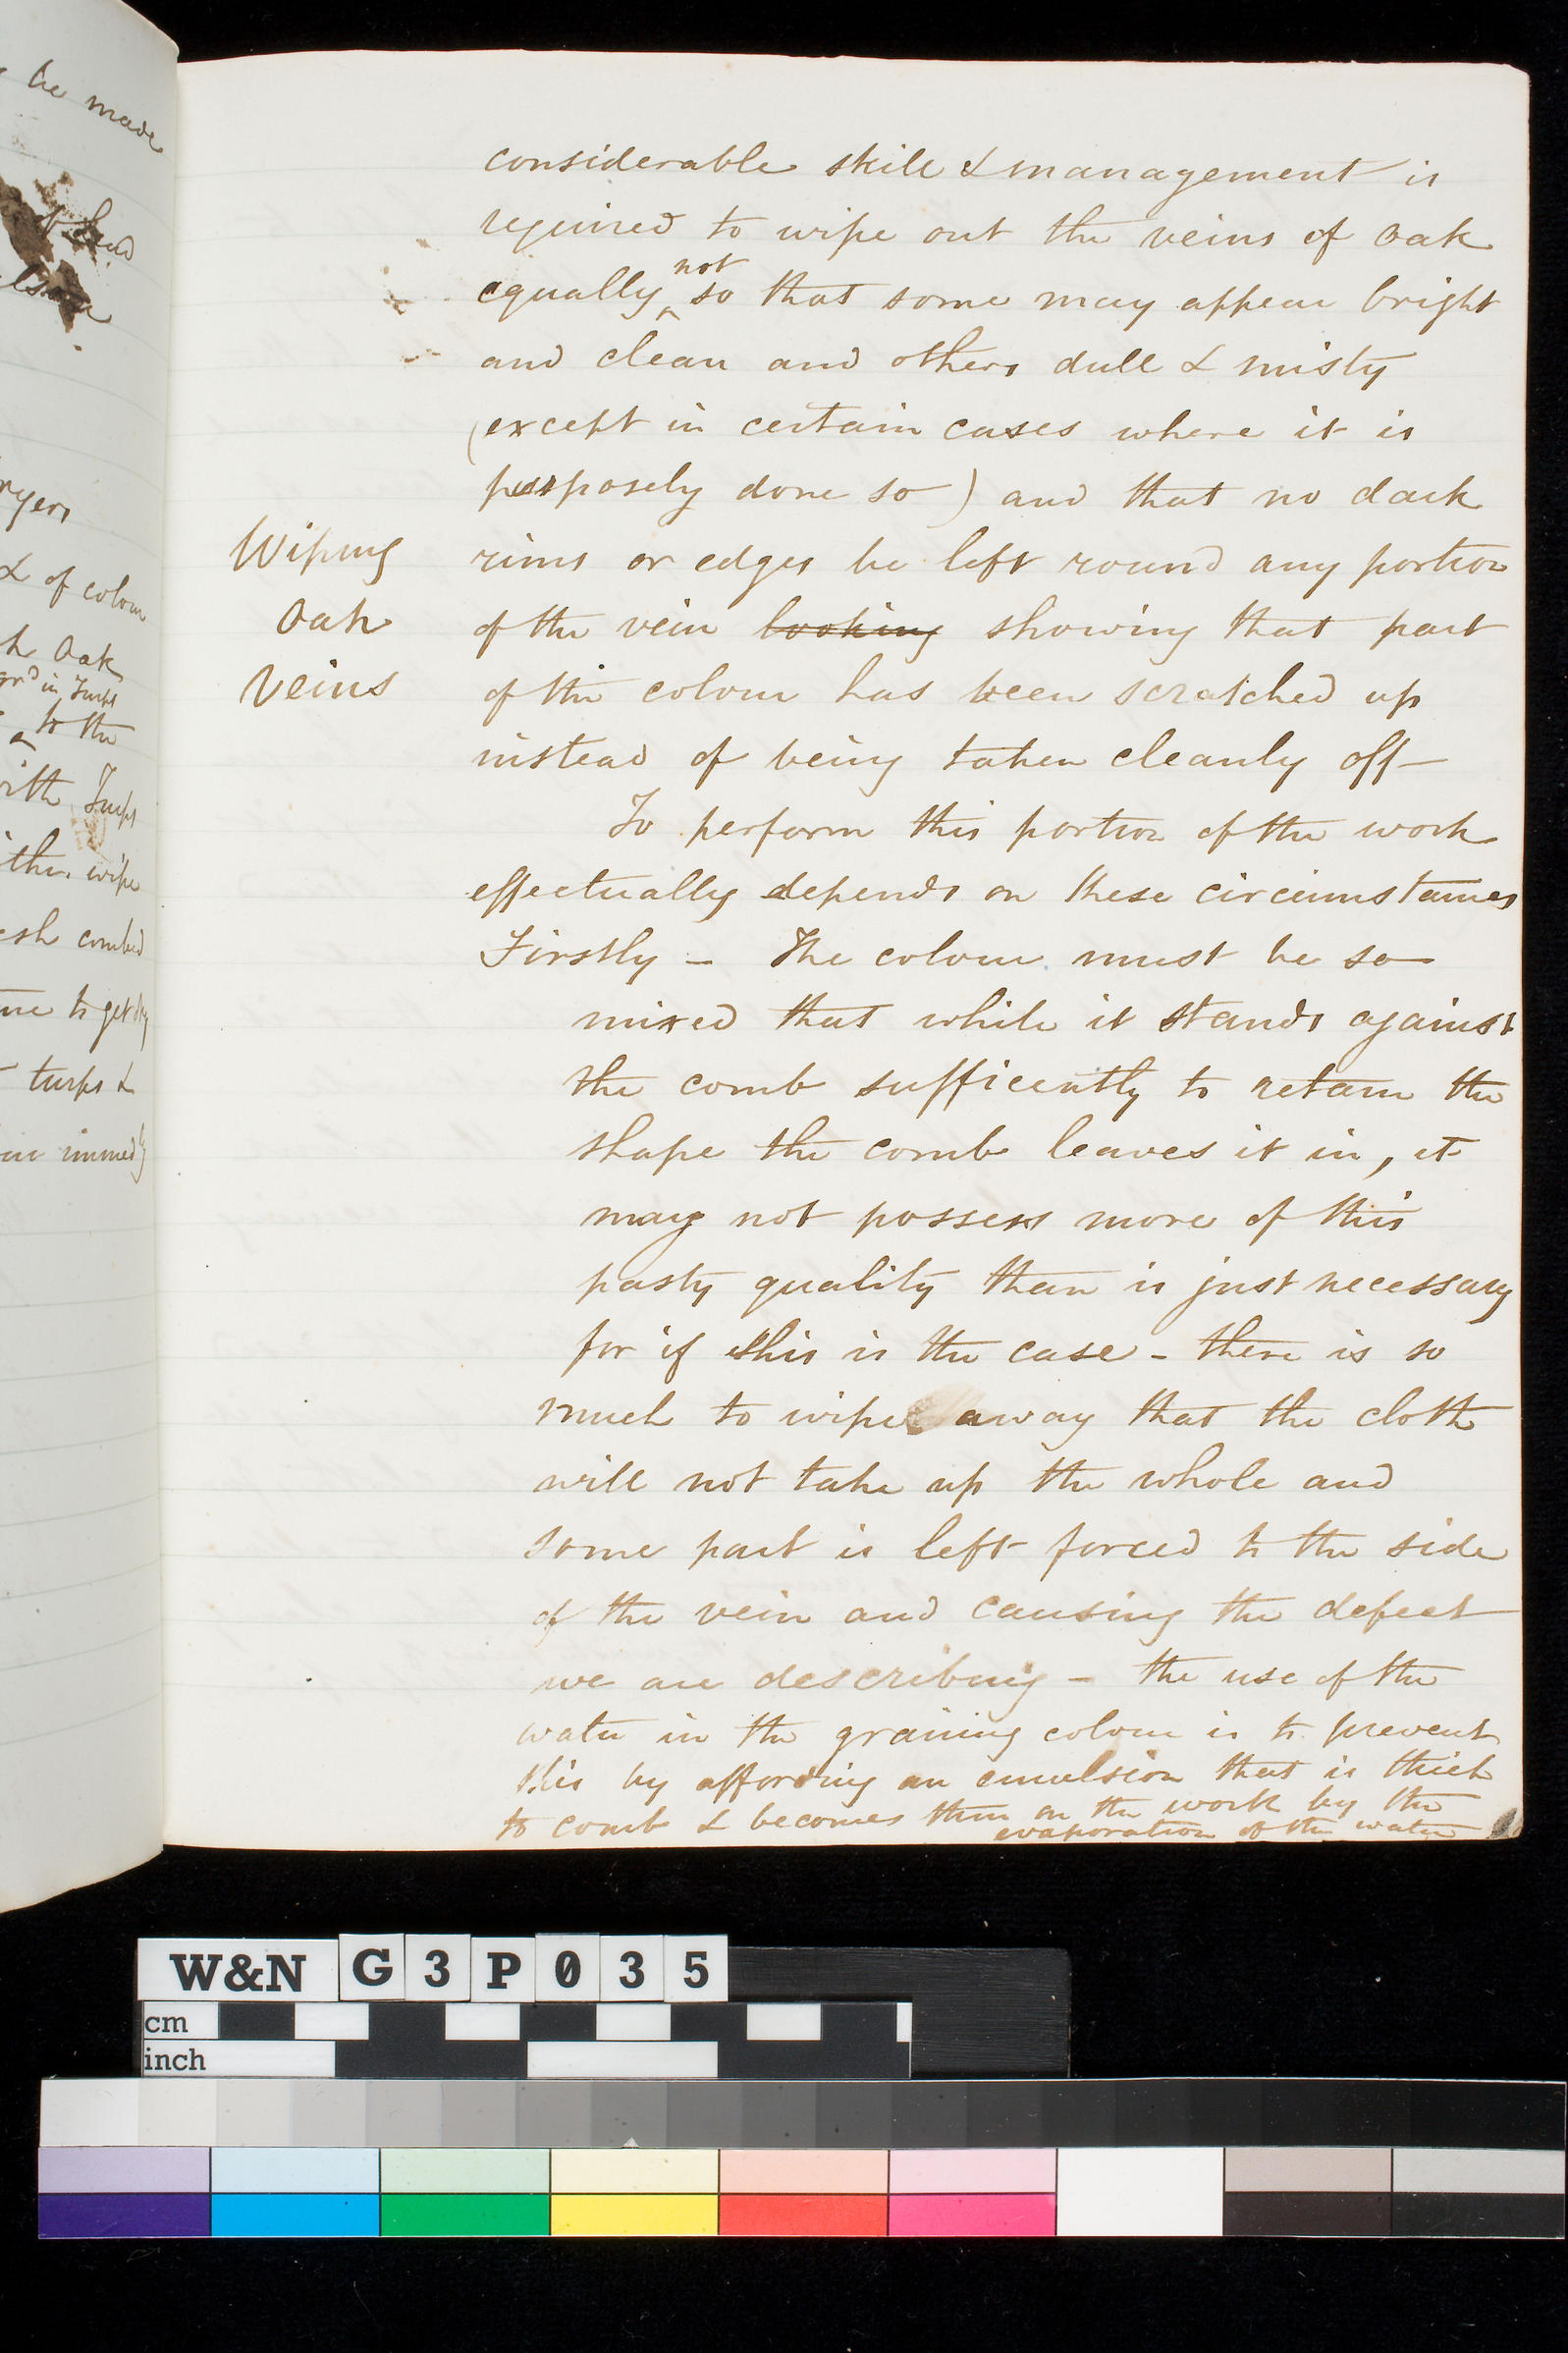 be made
ryers
& of colour
h Oak
grd in Turps
to the
with Turps
wipe
esh combed
me to get dry
turps &
immedly
considerable skill & management is
required to wipe out the veins of oak
not
equally ‸ so that some may appear bright
and clean and others dull & misty
(except in certain cases where it is
purposely done so) and that no dark
Wiping
Oak
Veins
rims or edges be left round any portion
of the vein looking showing that part
of the colour has been scratched up
instead of being taken cleanly off—
To perform this portion of the work
effectually depends on these circumstances
Firstly – The colour must be so
mixed that while it stands against
the comb sufficently to retain the
shape the comb leaves it in, it
may not possess more of this
pasty quality than is just necessary
for if this is the case – there is so
much to wipe away that the cloth
will not take up the whole and
some part is left forced to the side
of the vein and causing the defect
we are describing – the use of the
water in the graining colour is to prevent
this by affording an emulsion that is thick
to comb & becomes thin on the work by the
evaporation of the water
W&N G3P035
cm
inch